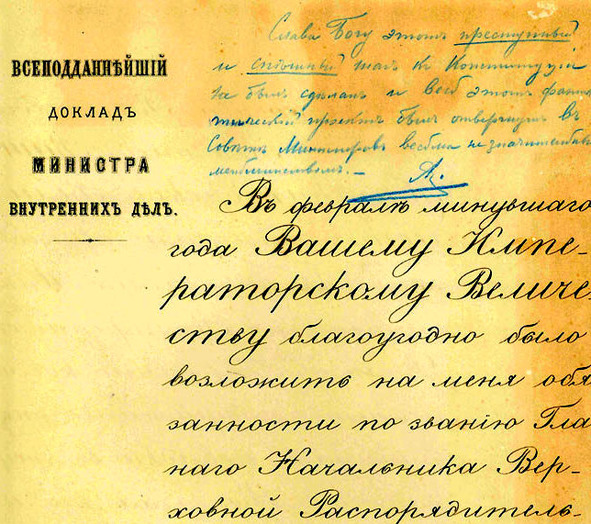 ВСЕПОДДАННѢЙШІЙ
ДОКЛАДЪ
МИНИСТРА
ВНУТРЕННИХЪ ДѢЛЪ.
Слава Богу этотъ преступный
и спѣшный шагъ къ Конституціи
не былъ сдѣланъ и весь этотъ фанта
стическій проектъ былъ отвергнутъ въ
Совѣтѣ Министровъ весьма незначительнымъ
меньшинствомъ.–
А.
Въ февралѣ минувшаго
года Вашему Импе-
раторскому Величе-
ству благоугодно было
возложить на меня обя
занности по званію Гла
наго Начальника Вер-
ховной Распорядитель-